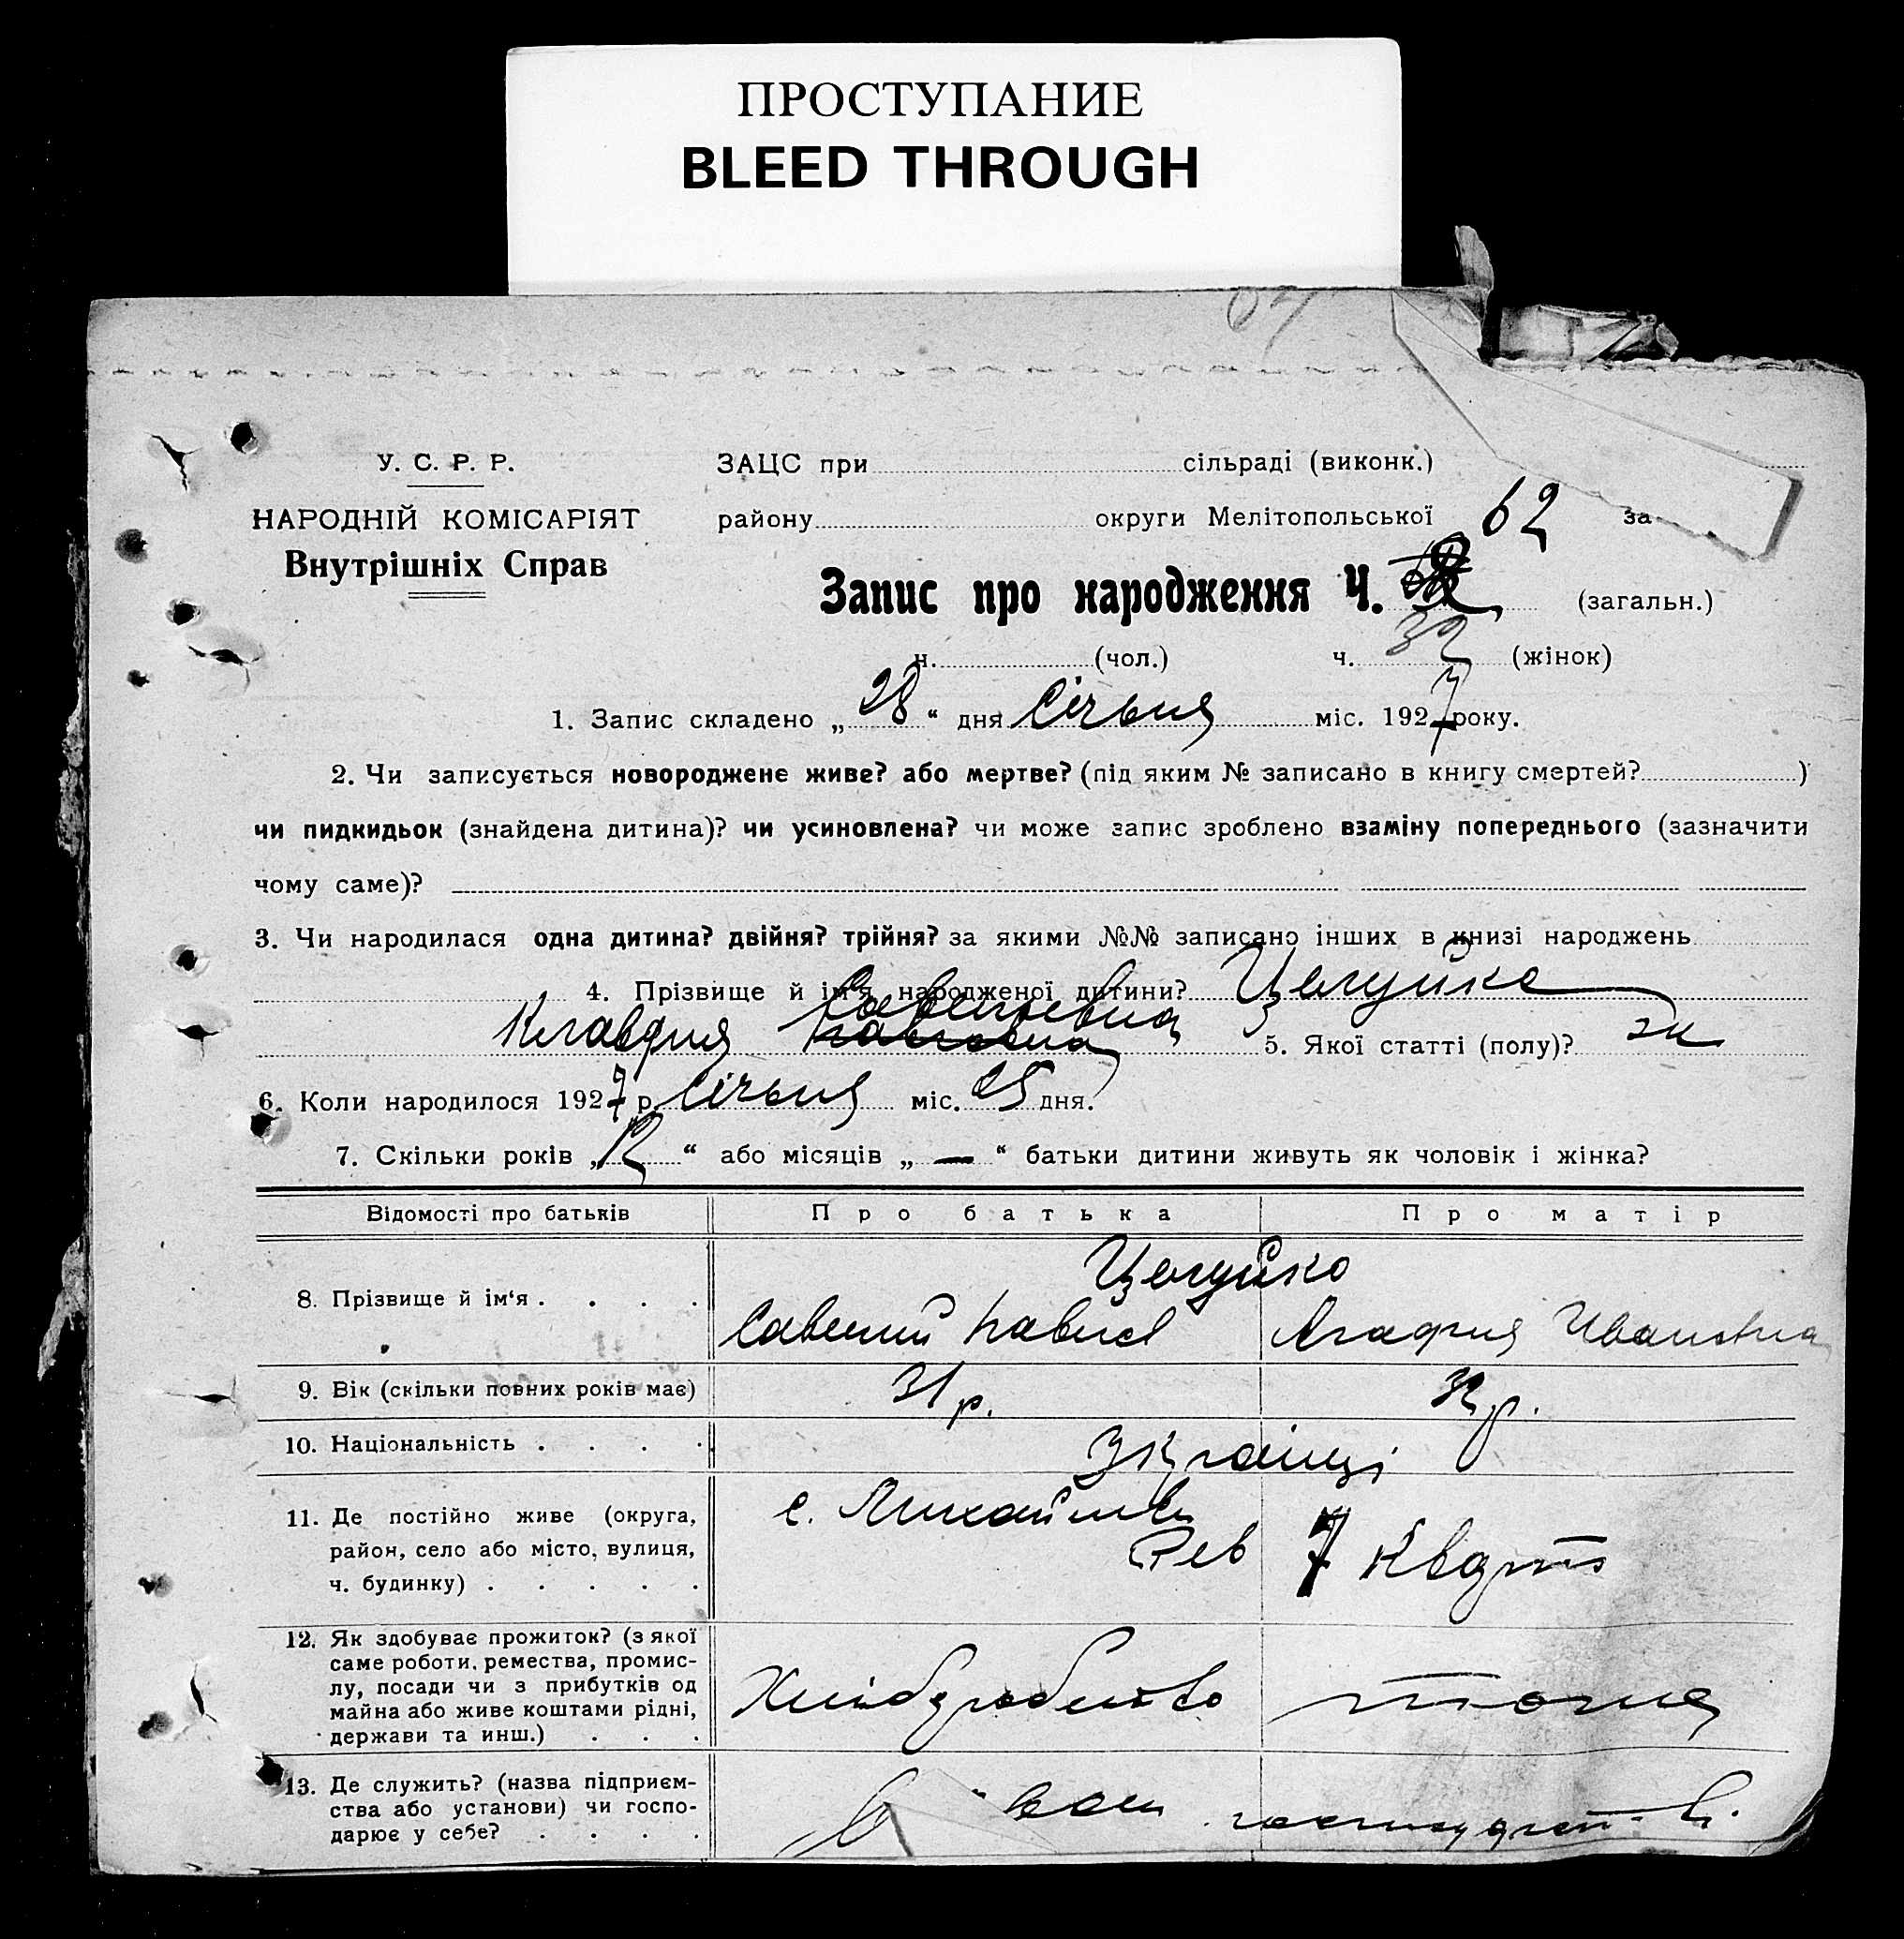 ПРОСТУПАНИЕ
BLEED THROUGH
У. С. Р. Р.
НАРОДНІЙ КОМІСАРІЯТ
Внутрішніх Справ
ЗАЦС при сільраді (виконк.)
району округи Мелітопольської 62 за
Запис про народження Ч. (загальн.)
ч. (чол.) ч. 32 (жінок)
1. Запис складено „28“ дня Січьня міс. 1927 року.
2. Чи записується новороджене живе? або мертве? (під яким № записано в книгу смертей? )
чи пидкидьок (знайдена дитина)? чи усиновлена? чи може запис зроблено взаміну попереднього (зазначити
чому саме)?
3. Чи народилася одна дитина? двійня? трійня? за якими №№ записано інших в книзі народжень
4. Прізвище й ім'я народженої дитини?
Клавдия 5. Якої статті (полу)? ж
6. Коли народилося 1927 р. Січьня міс. 25 дня.
7. Скільки років „12“ або місяців „—“ батьки дитини живуть як чоловік і жінка?
Відомості про батьків Про батька Про матір
8. Прізвище й ім‘я . . . .
Савелий Павлов Агафия Ивановна
9. Вік (скільки повних років має) 31 р. 32 р.
10. Національність . . . . Україньці
11. Де постійно живе (округа,
район, село або місто, вулиця,
ч. будинку) . . . . .
с. Михайлівка
7
12. Як здобуває прожиток? (з якої
саме роботи, ремества, промис-
лу, посади чи з прибутків од
майна або живе коштами рідні,
держави та инш.) . . .
Хліборобство
13. Де служить? (назва підприєм-
ства або установи) чи госпо-
дарює у себе? . . . .